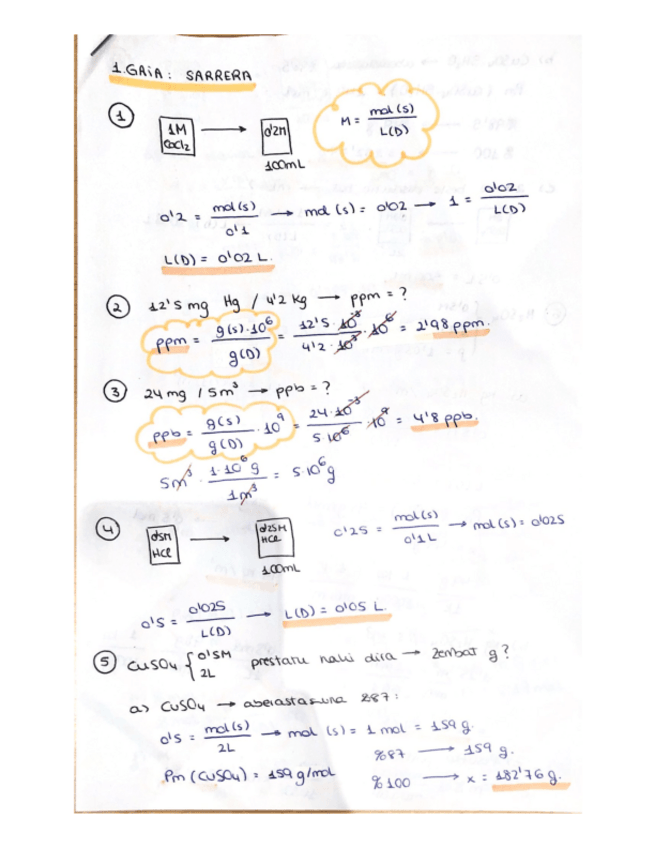 1.GAIA: SARRERA
① 1M CoCl₂ → 0'2M 100mL M = mol(s) / L(D)
0'2 = mol(s) / 0'1 → mol(s) = 0'02 → 1 = 0'02 / L(D)
L(D) = 0'02 L.
② 12'5 mg Hg / 4'2 kg → ppm = ?
ppm = g(s)·10⁶ / g(D) = 12'5·10⁻³ / 4'2·10³ ·10⁶ = 2'98 ppm.
③ 24 mg / 5m³ → ppb = ?
ppb = g(s) / g(D) · 10⁹ = 24·10⁻³ / 5·10⁶ ·10⁹ = 4'8 ppb.
5m³ · 1·10⁶ g / 1m³ = 5·10⁶ g
④ 0'5M HCl → 0'25M HCl 100mL 0'25 = mol(s) / 0'1L → mol(s) = 0'025
0'5 = 0'025 / L(D) → L(D) = 0'05 L.
⑤ CuSO₄ { 0'5M 2L prestatu nahi dira → zenbat g?
a) CuSO₄ → aberastasuna %87:
0'5 = mol(s) / 2L → mol(s) = 1 mol = 159 g.
%87 → 159 g.
Pm (CuSO₄) = 159 g/mol
%100 → x = 182'76 g.